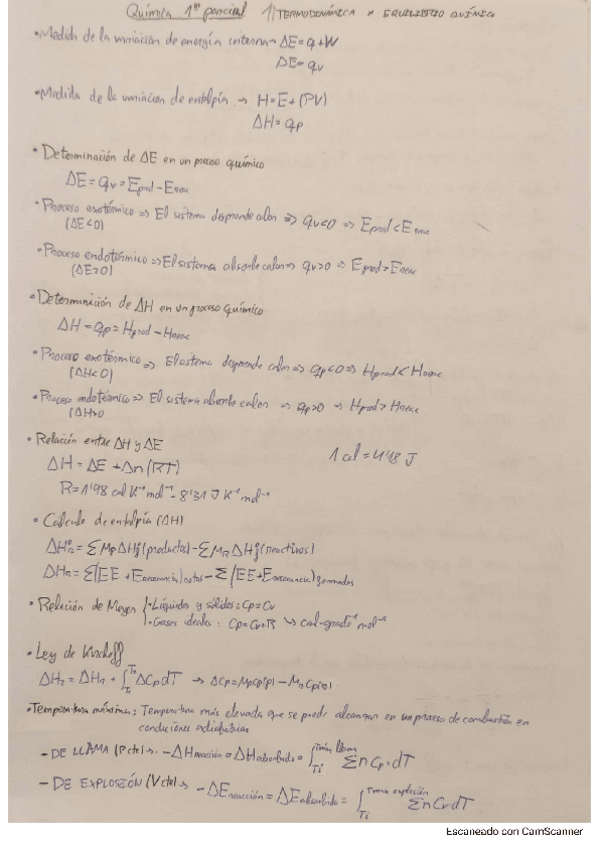 Química 1er parcial 1) TERMODINÁMICA Y EQUILIBRIO QUÍMICO
• Medida de la variación de energía interna → ΔE = q + W
ΔE = qv
• Medida de la variación de entalpía → H = E + (PV)
ΔH = qp
• Determinación de ΔE en un proceso químico
ΔE = qv = Eprod - Ereac
• Proceso exotérmico => El sistema desprende calor => qv<0 => Eprod < Ereac
(ΔE<0)
• Proceso endotérmico => El sistema absorbe calor => qv>0 => Eprod > Ereac
(ΔE>0)
• Determinación de ΔH en un proceso químico
ΔH = qp = Hprod - Hreac
• Proceso exotérmico => El sistema desprende calor => qp<0 => Hprod < Hreac
(ΔH<0)
• Proceso endotérmico => El sistema absorbe calor => qp>0 => Hprod > Hreac
(ΔH>0
• Relación entre ΔH y ΔE
1 cal = 4'18 J
ΔH = ΔE + Δn(RT)
R = 1'98 cal K⁻¹ mol⁻¹ - 8'31 J K⁻¹ mol⁻¹
• Cálculo de entalpía (ΔH)
ΔH°r = Σ Mp ΔH°f (productos) - Σ MR ΔH°f (reactivos)
ΔHr = Σ(EE + Eresonancia) rotos - Σ(EE + Eresonancia) formados
• Relación de Mayer { • Líquidos y sólidos: Cp = Cv
• Gases ideales: Cp = Cv + R ↳ cal·grado⁻¹ mol⁻¹
• Ley de Kirchoff
ΔH2 = ΔH1 + ∫ ΔCp dT → ΔCp = Mp Cp(p) - Mr Cp(r)
• Temperatura máxima: Temperatura más elevada que se puede alcanzar en un proceso de combustión en
condiciones adiabáticas
- DE LLAMA (P cte) → -ΔHreacción = ΔHabsorbido = ∫Ti Tmáx llama Σ n Cp · dT
- DE EXPLOSIÓN (V cte) → -ΔEreacción = ΔEabsorbida = ∫Ti Tmáx explosión Σ n Cv dT
Escaneado con CamScanner